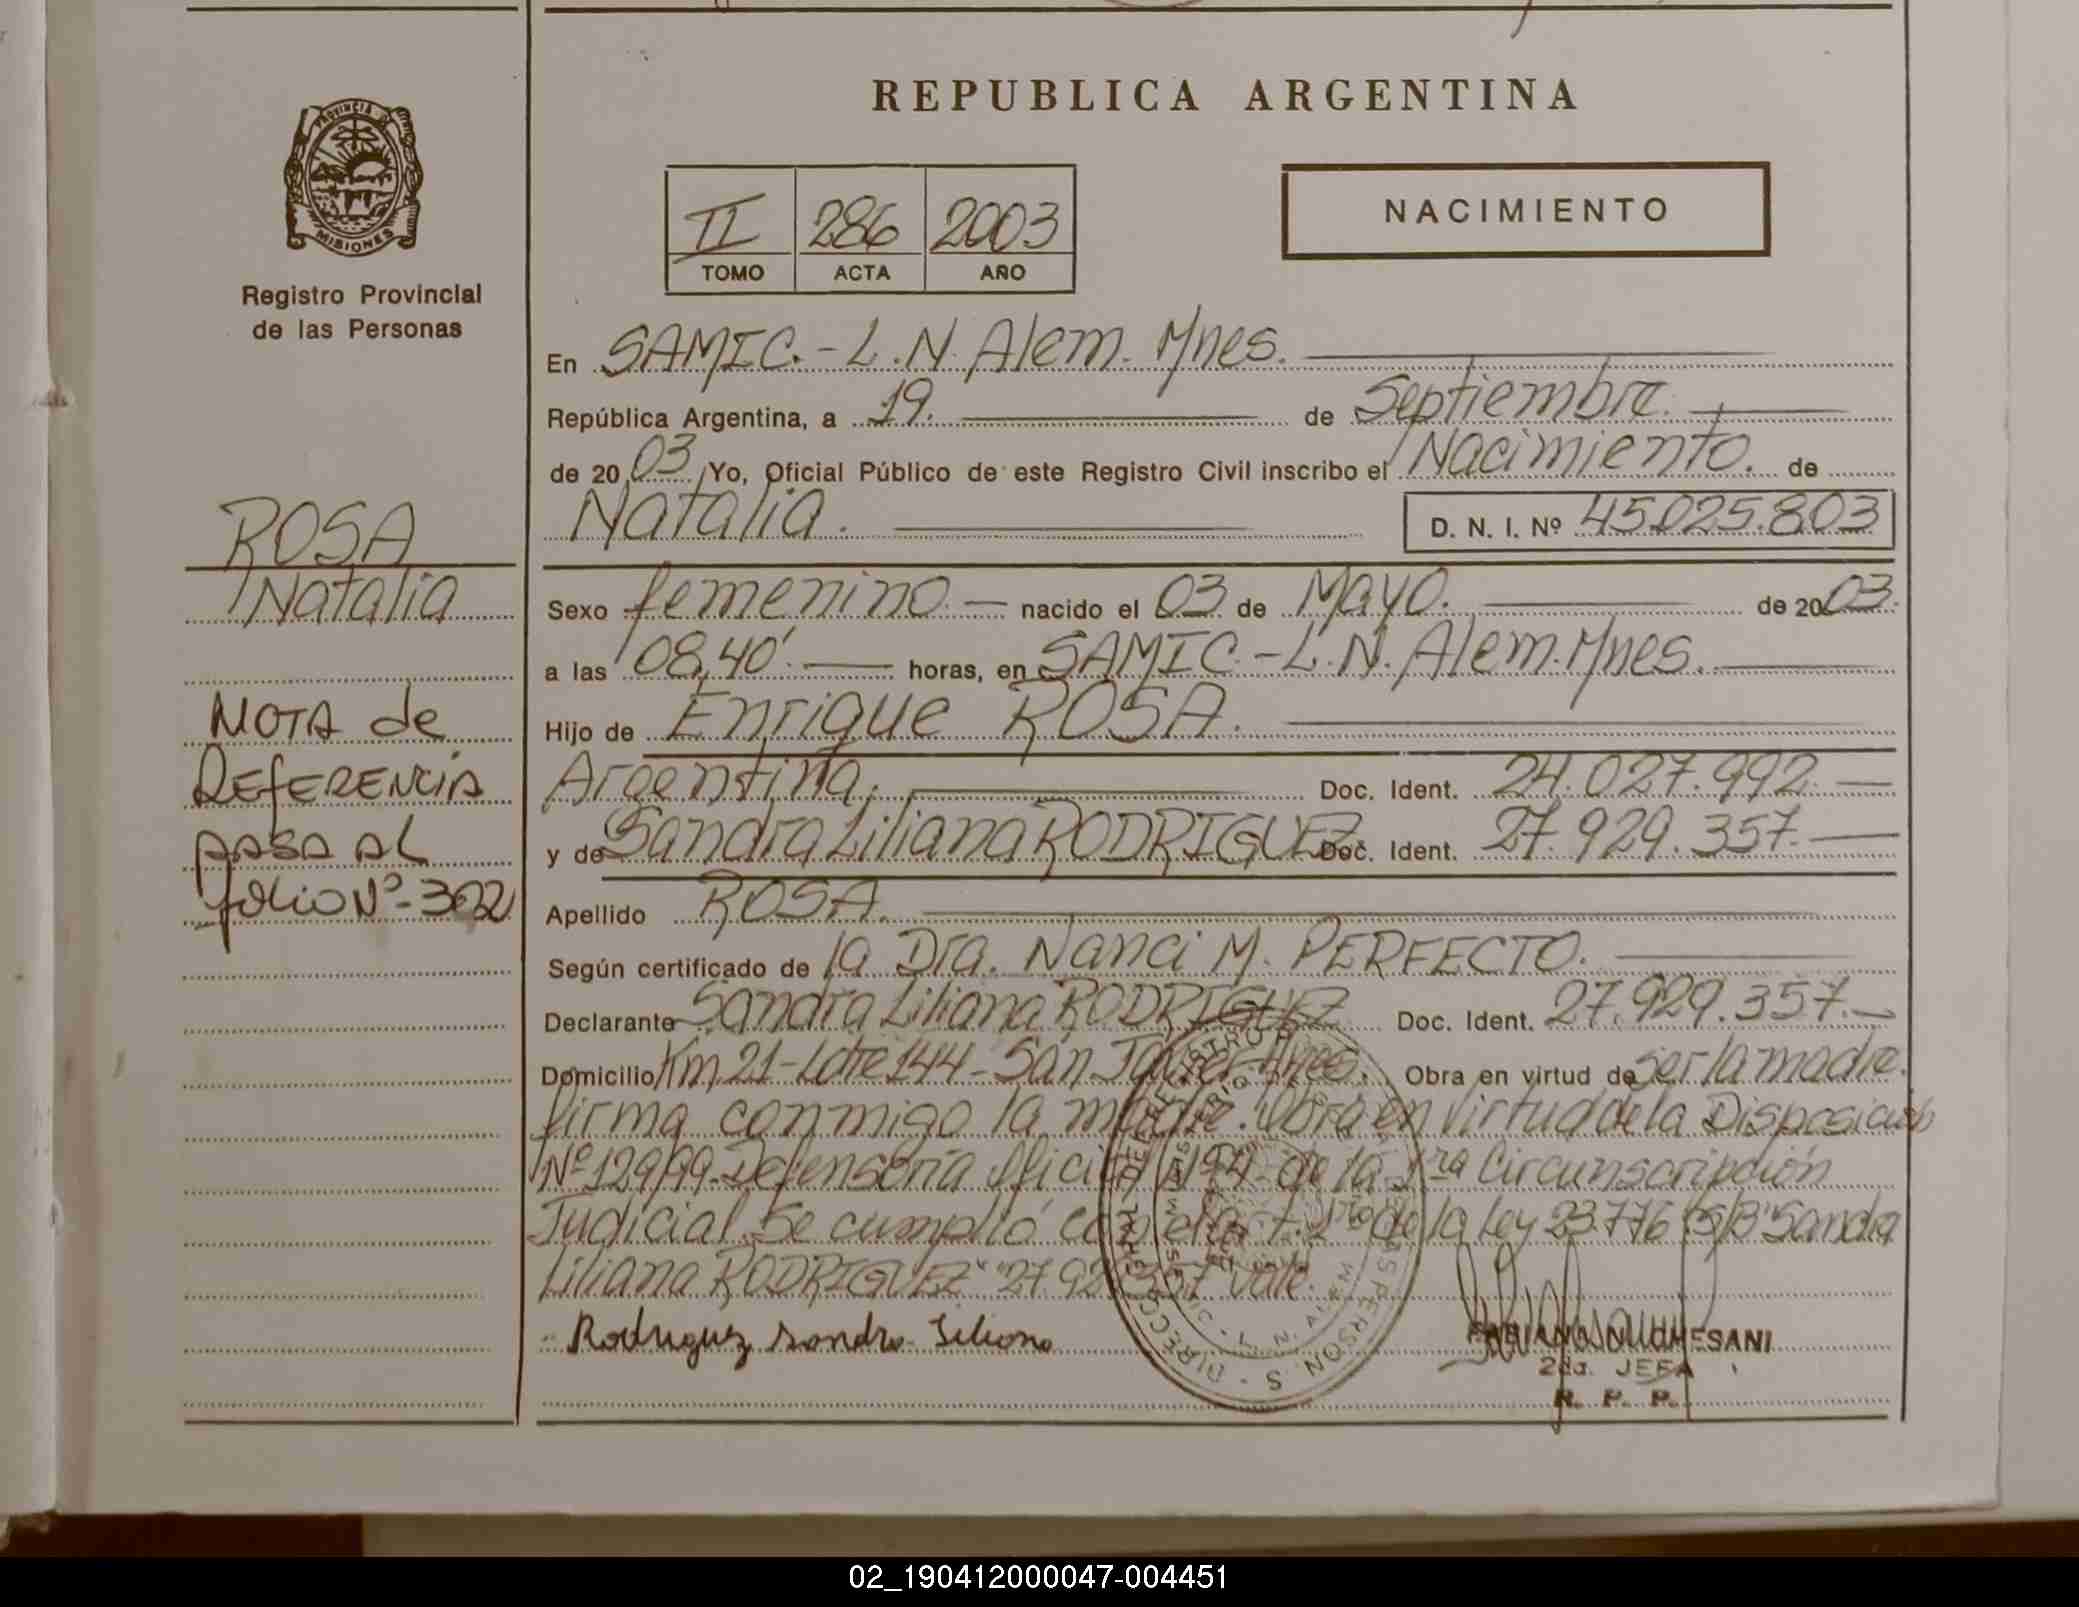 REPUBLICA ARGENTINA
PROVINCIA DE
MISIONES
Registro Provincial
de las Personas
II 286 2003
TOMO ACTA AÑO
NACIMIENTO
En SAMIC.-L.N. Alem. Mnes.
República Argentina, a 19. de Septiembre.
de 2003 Yo, Oficial Público de este Registro Civil inscribo el Nacimiento. de
Natalia. D. N. I. Nº 45.025.803
ROSA
Natalia
Sexo femenino.- nacido el 03 de Mayo. de 2003.
a las 08,40'. horas, en SAMIC.-L.N. Alem. Mnes.
Hijo de Enrique ROSA.
Argentina. Doc. Ident. 24.027.992.-
y de Sandra Liliana RODRIGUEZ Doc. Ident. 27.929.357.-
Apellido ROSA.
Según certificado de la Dra. Nanci M. PERFECTO.
Declarante Sandra Liliana RODRIGUEZ Doc. Ident. 27.929.357.-
Domicilio Km 21-Lote 144-San Javier-Mnes. Obra en virtud de ser la madre.
firma conmigo la madre. Obra en virtud de la Disposición
Nº 129/99-Defensoría Oficial Nº4 de la 1ra Circunscripción
Judicial. Se cumplió con el art. 1ro de la Ley 23.776 S/B "Sandra
Liliana RODRIGUEZ" "27.929.357 vale.
Rodriguez Sandra Liliana
2da. JEFA
R. P. P.
NOTA de
REFERENCIA
PASA AL
folio Nº-302
02_190412000047-004451